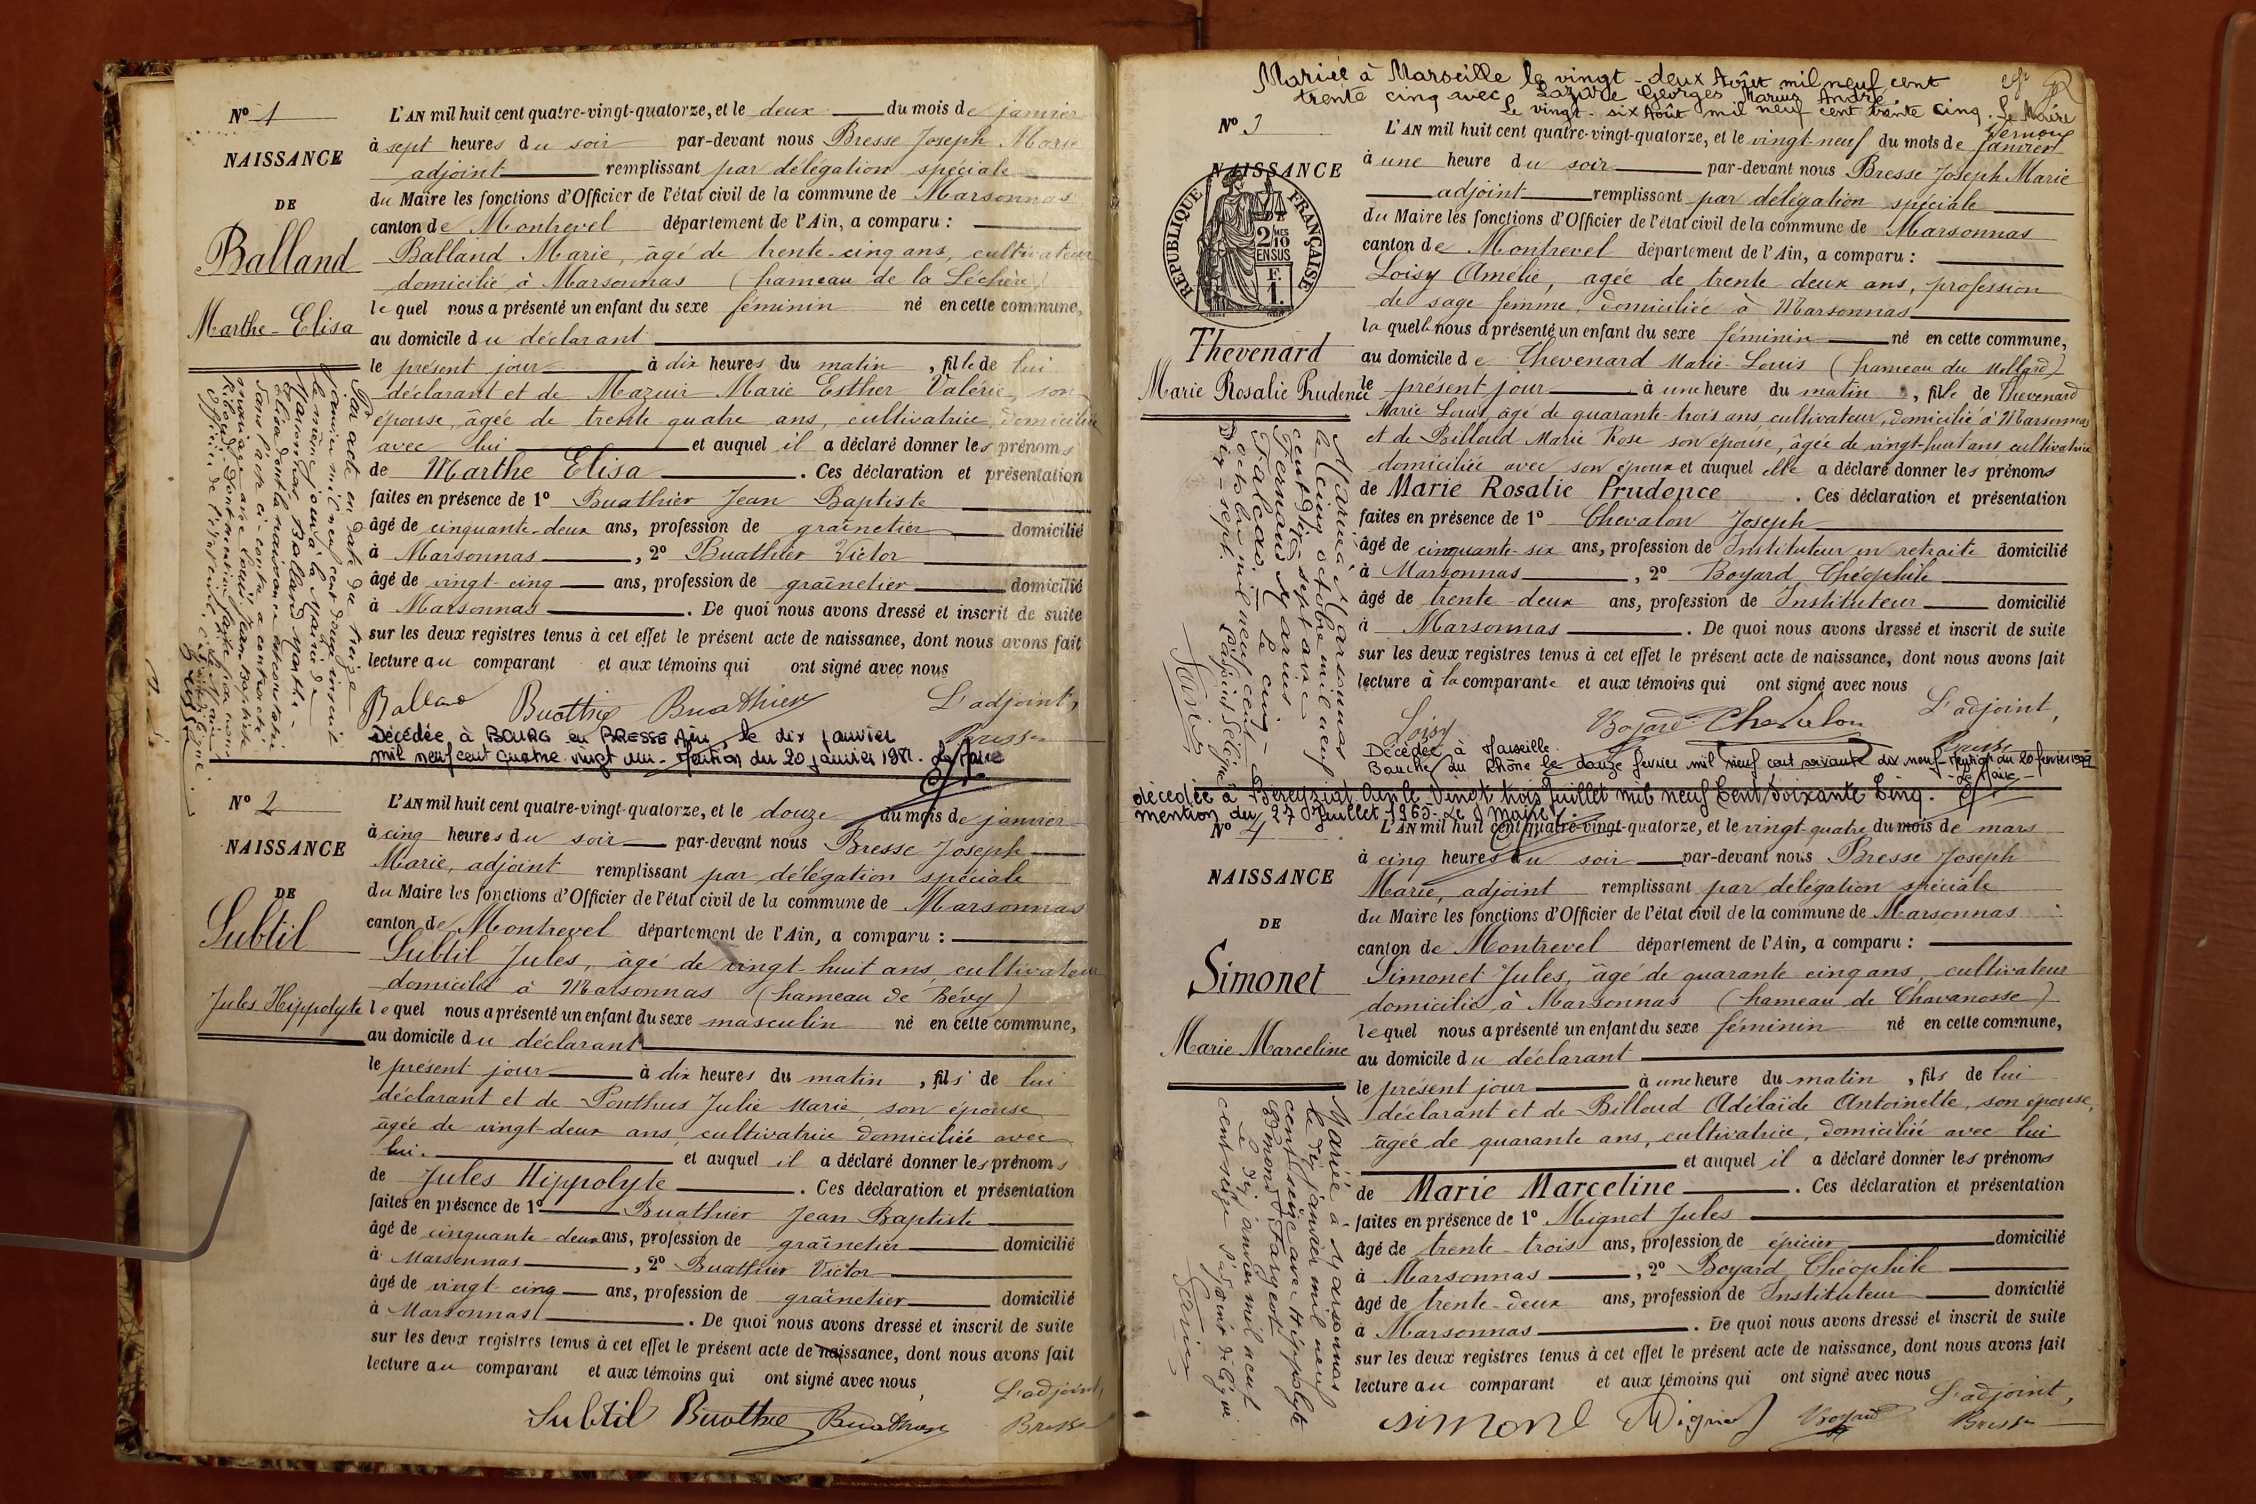 N° 1
NAISSANCE
DE
Balland
Marthe-Elisa
L'AN mil huit cent quatre-vingt-quatorze, et le deux du mois de janvier
à sept heures du soir par-devant nous Bresse Joseph Marie
adjoint remplissant par délégation spéciale
du Maire les fonctions d'Officier de l'état civil de la commune de Marsonnas
canton de Montrevel département de l'Ain, a comparu :
Balland Marie, âgé de trente-cinq ans, cultivateur
domicilié à Marsonnas (hameau de la Léchère)
lequel nous a présenté un enfant du sexe féminin né en cette commune,
au domicile du déclarant
le présent jour à dix heures du matin, fille de lui
déclarant et de Mazuir Marie Esther Valérie, son
épouse, âgée de trente quatre ans, cultivatrice, domiciliée
avec lui et auquel il a déclaré donner les prénoms
de Marthe Elisa. Ces déclaration et présentation
faites en présence de 1° Buathier Jean Baptiste
âgé de cinquante-deux ans, profession de graînetier domicilié
à Marsonnas, 2° Buathier Victor
âgé de vingt-cinq ans, profession de graînetier domicilié
à Marsonnas. De quoi nous avons dressé et inscrit de suite
sur les deux registres tenus à cet effet le présent acte de naissance, dont nous avons fait
lecture au comparant et aux témoins qui ont signé avec nous
Balland Buathier Buathier L'adjoint,
Bresse
Décédée à BOURG en BRESSE Ain, le dix janvier
mil neuf cent quatre vingt un - Mention du 20 janvier 1981. Le Maire
Par acte en date du treize
janvier mil neuf cent
le même jour à la Mairie de
Marsonnas, Balland Marthe-
Elisa dont la naissance est constatée
dans l'acte ci-contre a contracté
mariage avec Jean Baptiste
N° 2
NAISSANCE
DE
Subtil
Jules Hippolyte
L'AN mil huit cent quatre-vingt-quatorze, et le douze du mois de janvier
à cinq heures du soir par-devant nous Bresse Joseph
Marie, adjoint remplissant par délégation spéciale
du Maire les fonctions d'Officier de l'état civil de la commune de Marsonnas
canton de Montrevel département de l'Ain, a comparu :
Subtil Jules, âgé de vingt-huit ans, cultivateur
domicilié à Marsonnas (hameau de Bévy)
lequel nous a présenté un enfant du sexe masculin né en cette commune,
au domicile du déclarant
le présent jour à dix heures du matin, fils de lui
déclarant et de Ponthus Julie Marie, son épouse
âgée de vingt-deux ans, cultivatrice domiciliée avec
lui. et auquel il a déclaré donner les prénoms
de Jules Hippolyte. Ces déclaration et présentation
faites en présence de 1° Buathier Jean Baptiste
âgé de cinquante-deux ans, profession de graînetier domicilié
à Marsonnas, 2° Buathier Victor
âgé de vingt-cinq ans, profession de graînetier domicilié
à Marsonnas. De quoi nous avons dressé et inscrit de suite
sur les deux registres tenus à cet effet le présent acte de naissance, dont nous avons fait
lecture au comparant et aux témoins qui ont signé avec nous,
L'adjoint,
Subtil Buathier Buathier Bresse
Mariée à Marseille le vingt-deux Août mil neuf cent
trente cinq avec Lazare Georges Marius André.
Le vingt-six Août mil neuf cent trente cinq. Le Maire
N° 3
NAISSANCE
RÉPUBLIQUE FRANÇAISE
2/10 MES
EN SUS
F.
1.
Thevenard
Marie Rosalie Prudence
L'AN mil huit cent quatre-vingt-quatorze, et le vingt-neuf du mois de janvier
à une heure du soir par-devant nous Bresse Joseph Marie
adjoint remplissant par délégation spéciale
du Maire les fonctions d'Officier de l'état civil de la commune de Marsonnas
canton de Montrevel département de l'Ain, a comparu :
Loisy Amélie, agée de trente deux ans, profession
de sage femme, domiciliée à Marsonnas
laquelle nous a présenté un enfant du sexe féminin né en cette commune,
au domicile de Thevenard Marie-Louis (hameau du Mollard)
le présent jour à une heure du matin, fille de Thevenard
Marie Louis, âgé de quarante-trois ans, cultivateur, domicilié à Marsonnas
et de Billoud Marie Rose son épouse, âgée de vingt-huit ans, cultivatrice
domiciliée avec son époux et auquel elle a déclaré donner les prénoms
de Marie Rosalie Prudence. Ces déclaration et présentation
faites en présence de 1° Chevalon Joseph
âgé de cinquante-six ans, profession de Instituteur en retraite domicilié
à Marsonnas, 2° Boyard Théophile
âgé de trente-deux ans, profession de Instituteur domicilié
à Marsonnas. De quoi nous avons dressé et inscrit de suite
sur les deux registres tenus à cet effet le présent acte de naissance, dont nous avons fait
lecture à la comparante et aux témoins qui ont signé avec nous
L'adjoint,
Loisy Boyard Chevalon Bresse
Décédée à Marseille
Bouches du Rhône le douze février mil neuf cent soixante dix neuf - Mention du 20 février 1979
Le Maire
Mariée à Marsonnas
le cinq octobre mil neuf
cent dix-sept avec
Fernand Marius
Falcoz. Le cinq
octobre mil neuf cent
dix-sept. L'adjoint délégué,
décédée à Béréyziat Ain le Vingt trois Juillet mil neuf Cent Soixante Cinq.
mention du 27 Juillet 1965. Le Maire
N° 4
NAISSANCE
DE
Simonet
Marie Marceline
L'AN mil huit cent quatre-vingt-quatorze, et le vingt-quatre du mois de mars
à cinq heures du soir par-devant nous Bresse Joseph
Marie, adjoint remplissant par délégation spéciale
du Maire les fonctions d'Officier de l'état civil de la commune de Marsonnas
canton de Montrevel département de l'Ain, a comparu :
Simonet Jules, âgé de quarante cinq ans, cultivateur
domicilié à Marsonnas (hameau de Chavanosse)
lequel nous a présenté un enfant du sexe féminin né en cette commune,
au domicile du déclarant
le présent jour à une heure du matin, fils de lui
déclarant et de Billoud Adélaïde Antoinette, son épouse,
âgée de quarante ans, cultivatrice, domiciliée avec lui
et auquel il a déclaré donner les prénoms
de Marie Marceline. Ces déclaration et présentation
faites en présence de 1° Mignot Jules
âgé de trente-trois ans, profession de épicier domicilié
à Marsonnas, 2° Boyard Théophile
âgé de trente-deux ans, profession de Instituteur domicilié
à Marsonnas. De quoi nous avons dressé et inscrit de suite
sur les deux registres tenus à cet effet le présent acte de naissance, dont nous avons fait
lecture au comparant et aux témoins qui ont signé avec nous
L'adjoint,
Simonet Mignot Boyard Bresse
Mariée à Marsonnas
le dix janvier mil neuf
cent seize avec Hippolyte
Edmond Fargeot
Le dix janvier mil neuf
cent seize L'adjoint délégué